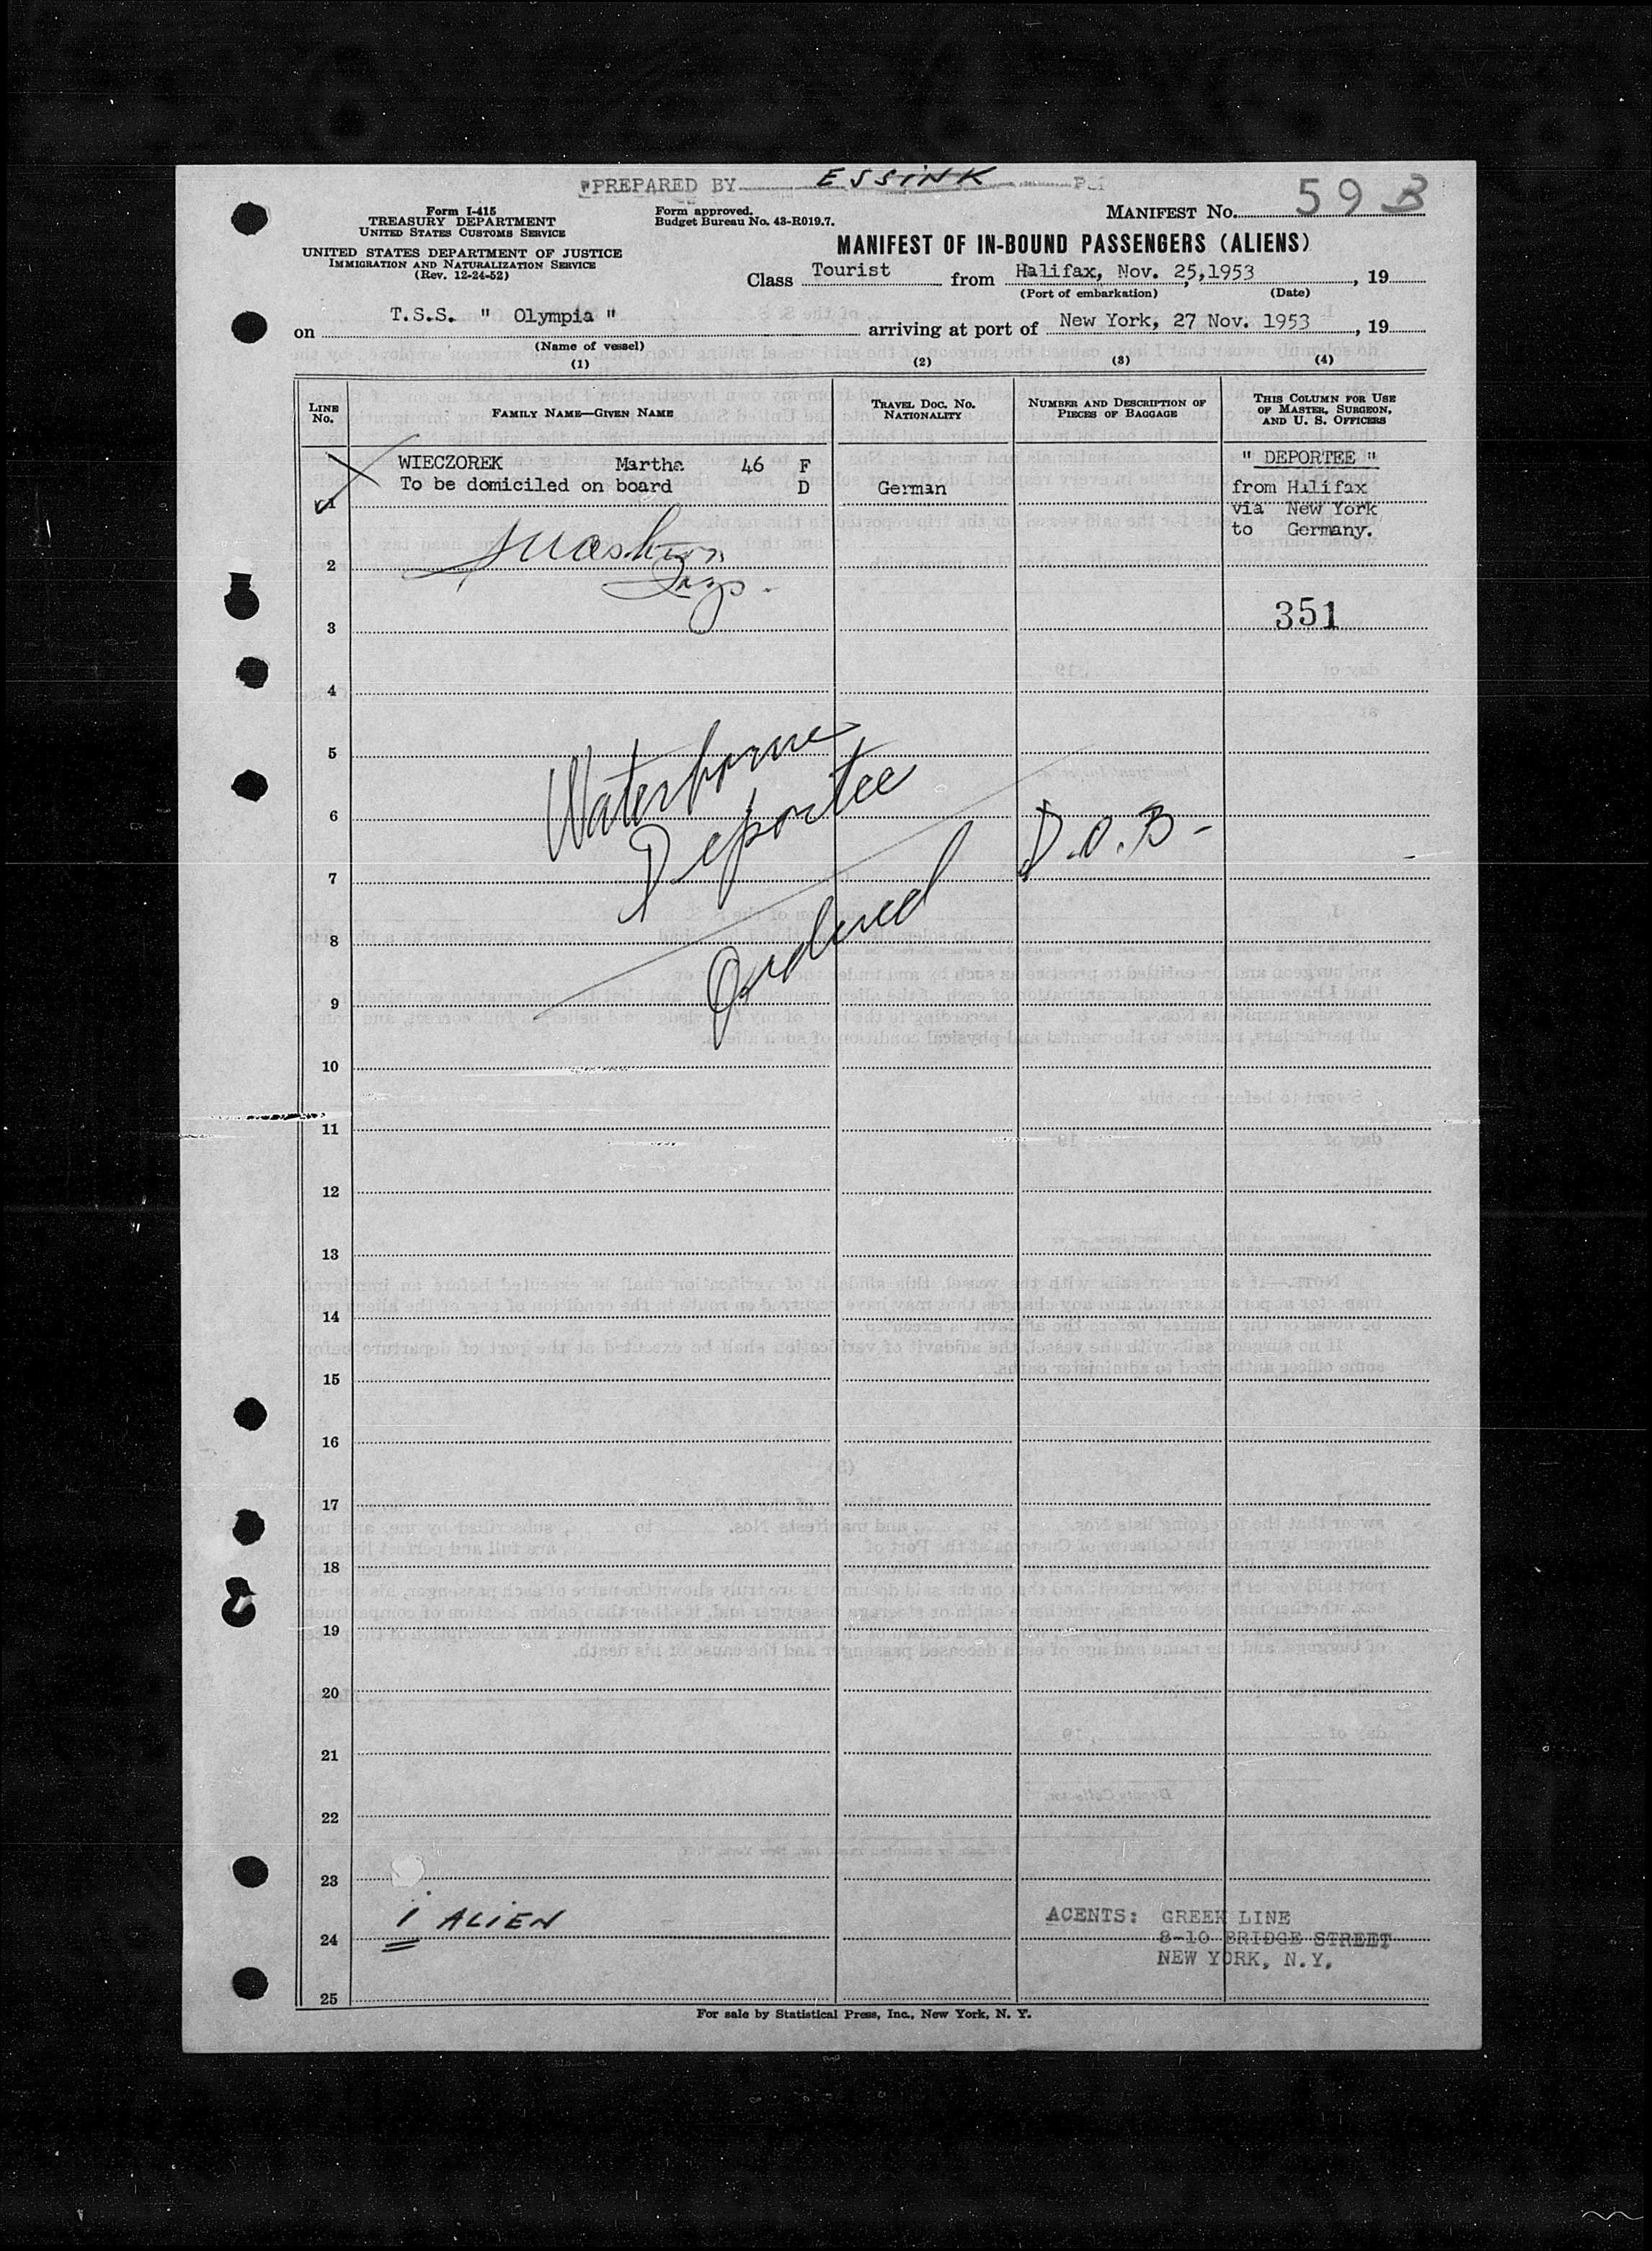 PREPARED BY ESSINK
Form I-415
TREASURY DEPARTMENT
UNITED STATES CUSTOMS SERVICE
UNITED STATES DEPARTMENT OF JUSTICE
IMMIGRATION AND NATURALIZATION SERVICE
(Rev. 12-24-52)
Form approved.
Budget Bureau No. 43-R019.7.
MANIFEST No. 59 B
MANIFEST OF IN-BOUND PASSENGERS (ALIENS)
Class Tourist from Halifax, Nov. 25, 1953, 19
(Port of embarkation) (Date)
on T.S.S. " Olympia " arriving at port of New York, 27 Nov. 1953, 19
(Name of vessel)
(1) (2) (3) (4)
LINE No. FAMILY NAME—GIVEN NAME TRAVEL DOC. No. NATIONALITY NUMBER AND DESCRIPTION OF PIECES OF BAGGAGE THIS COLUMN FOR USE OF MASTER, SURGEON, AND U. S. OFFICERS
WIECZOREK Martha 46 F " DEPORTEE "
To be domiciled on board D German from Halifax
1 via New York
to Germany.
2
351
3
4
5
Waterborne
Deportee
6
D.O.B-
7
Ordered
8
9
10
11
12
13
14
15
16
17
18
19
20
21
22
23
1 ALIEN
AGENTS: GREEK LINE
24 8-10 BRIDGE STREET
NEW YORK, N.Y.
25
For sale by Statistical Press, Inc., New York, N. Y.